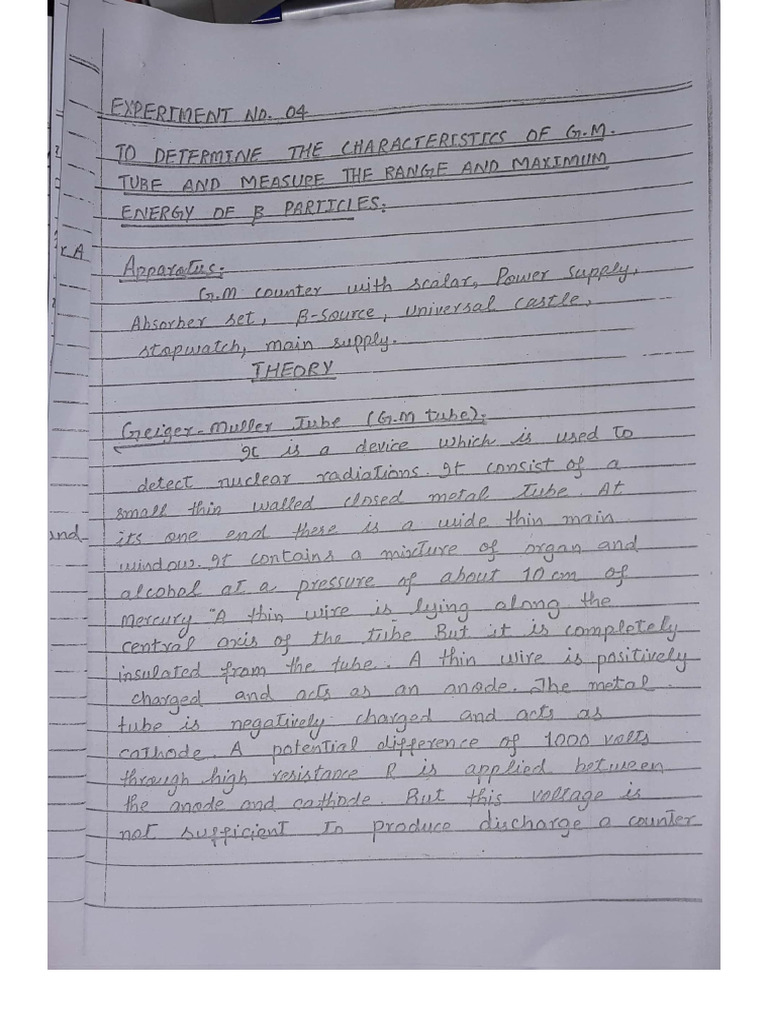 EXPERIMENT NO. 04
TO DETERMINE THE CHARACTERISTICS OF G.M.
TUBE AND MEASURE THE RANGE AND MAXIMUM
ENERGY OF β PARTICLES:
r A
Apparatus:
G.M counter with scalar, Power supply,
Absorber set, β-source, universal castle,
stopwatch, main supply.
THEORY
Geiger-Muller Tube (G.M tube):
It is a device which is used to
detect nuclear radiations. It consist of a
small thin walled closed metal Tube. At
its one end there is a wide thin main
window. It contains a mixture of organ and
alcohol at a pressure of about 10 cm of
mercury "A thin wire is lying along the
central axis of the tube But it is completely
insulated from the tube. A thin wire is positively
charged and acts as an anode. The metal
tube is negatively charged and acts as
cathode. A potential difference of 1000 volts
through high resistance R is applied between
the anode and cathode. But this voltage is
not sufficient to produce discharge a counter